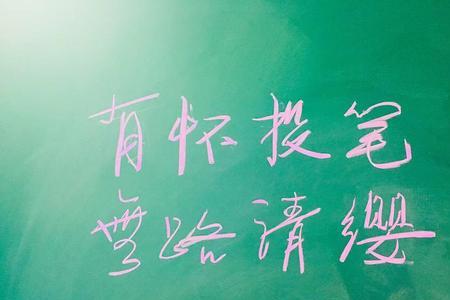 有怀投笔
無路请缨